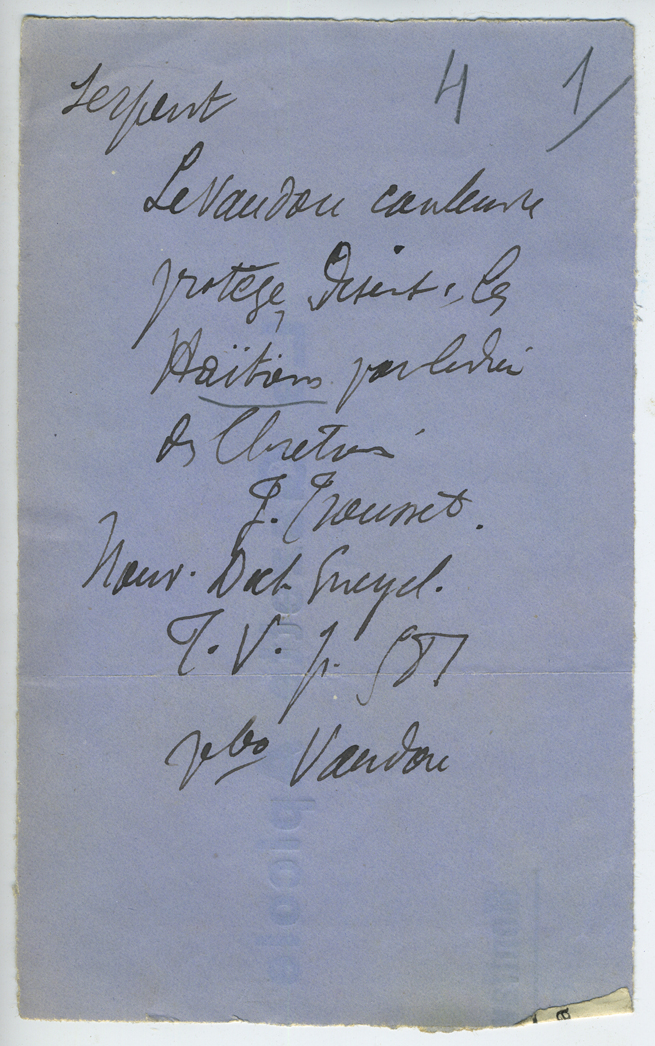 Serpent 4 1/
Le Vaudou couleuvre
protége, Disent-, les
Haïtiens par le dieu
des Chretiens
J. Trousset.
Nouv. Dict. Encycl.
T. V. p. 587
vbo Vaudou